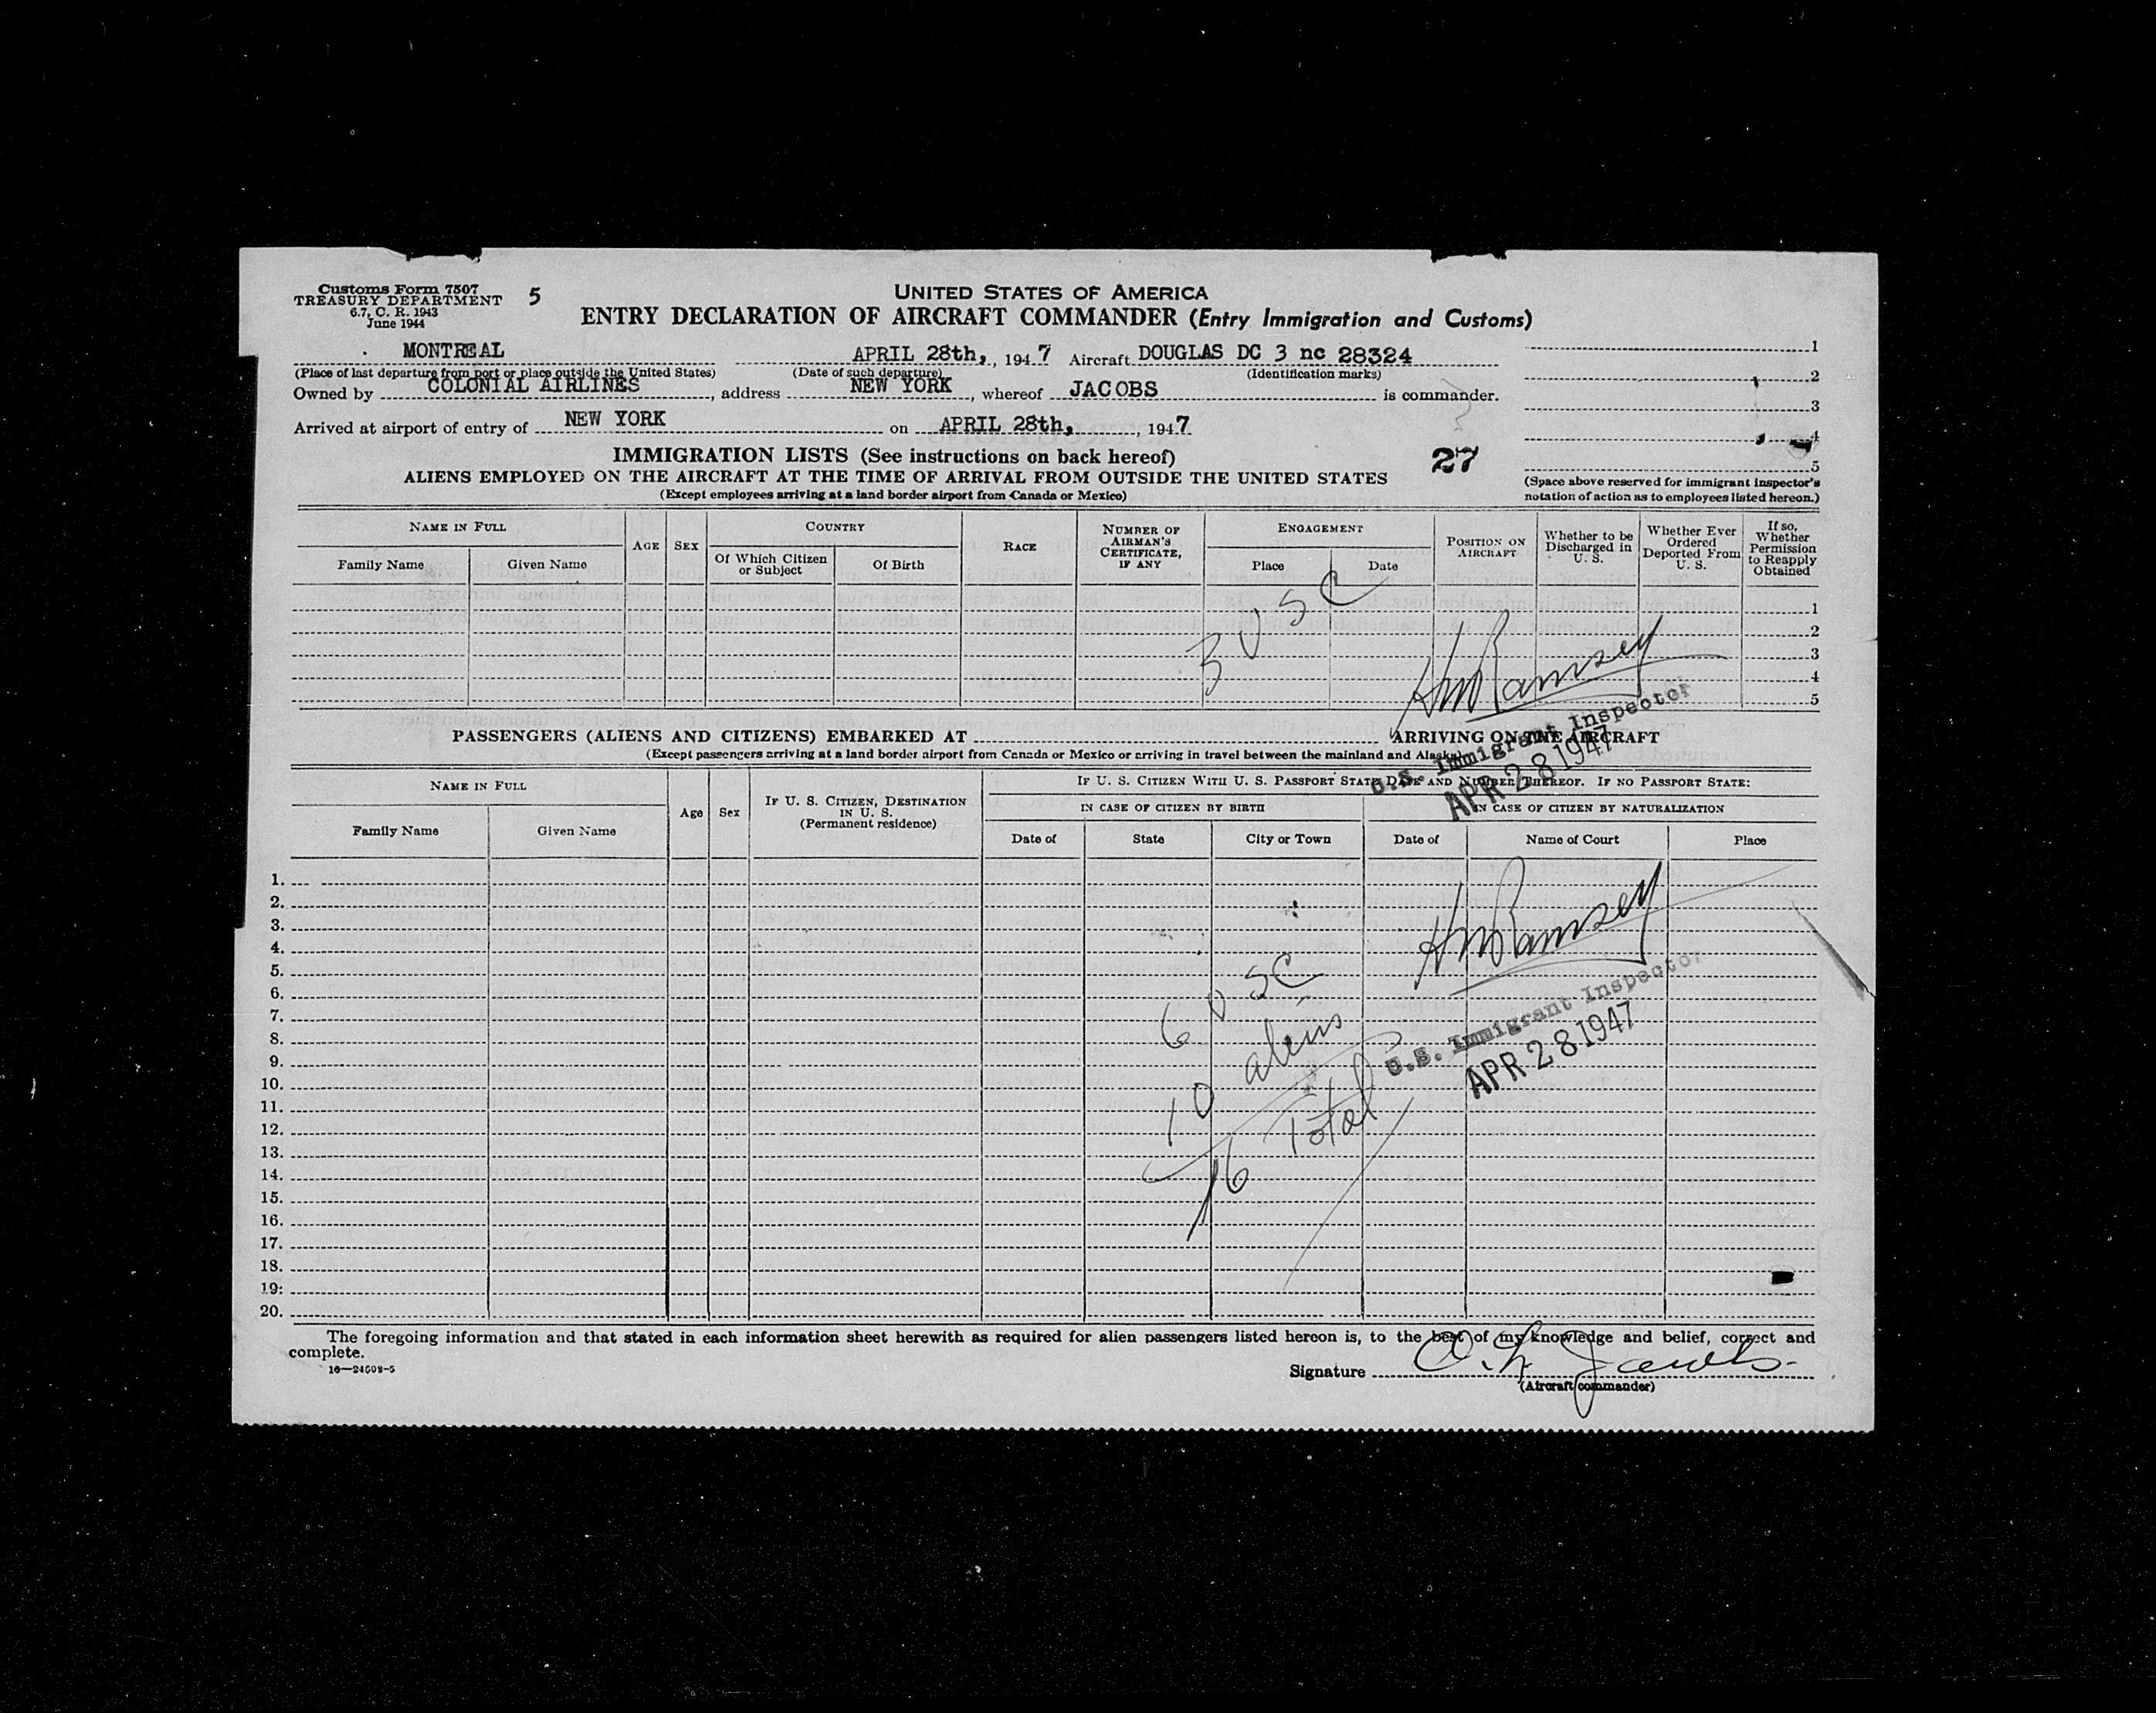 Customs Form 7507
TREASURY DEPARTMENT
6.7, C. R. 1943
June 1944
5
UNITED STATES OF AMERICA
ENTRY DECLARATION OF AIRCRAFT COMMANDER (Entry Immigration and Customs)
MONTREAL APRIL 28th, , 1947 Aircraft DOUGLAS DC 3 nc 28324
(Place of last departure from port or place outside the United States) (Date of such departure) (Identification marks)
Owned by COLONIAL AIRLINES , address NEW YORK , whereof JACOBS is commander.
Arrived at airport of entry of NEW YORK on APRIL 28th, , 1947
1
2
3
4
5
(Space above reserved for immigrant inspector's
notation of action as to employees listed hereon.)
IMMIGRATION LISTS (See instructions on back hereof)
27
ALIENS EMPLOYED ON THE AIRCRAFT AT THE TIME OF ARRIVAL FROM OUTSIDE THE UNITED STATES
(Except employees arriving at a land border airport from Canada or Mexico)
NAME IN FULL
Family Name Given Name
AGE SEX
COUNTRY
Of Which Citizen or Subject
Of Birth
RACE
NUMBER OF AIRMAN'S CERTIFICATE, IF ANY
ENGAGEMENT
Place Date
POSITION ON AIRCRAFT
Whether to be Discharged in U. S.
Whether Ever Ordered Deported From U. S.
If so, Whether Permission to Reapply Obtained
1
2
3
4
5
3 USC
HM Ramsey
U.S. Immigrant Inspector
APR 28 1947
PASSENGERS (ALIENS AND CITIZENS) EMBARKED AT ARRIVING ON THE AIRCRAFT
(Except passengers arriving at a land border airport from Canada or Mexico or arriving in travel between the mainland and Alaska)
NAME IN FULL
Family Name Given Name
Age Sex
IF U. S. CITIZEN, DESTINATION IN U. S.
(Permanent residence)
IF U. S. CITIZEN WITH U. S. PASSPORT STATE DATE AND NUMBER THEREOF. IF NO PASSPORT STATE:
IN CASE OF CITIZEN BY BIRTH
IN CASE OF CITIZEN BY NATURALIZATION
Date of State City or Town Date of Name of Court Place
1.
2.
3.
4.
5.
6.
7.
8.
9.
10.
11.
12.
13.
14.
15.
16.
17.
18.
19.
20.
6 USC
10 aliens
16 Total
HM Ramsey
U.S. Immigrant Inspector
APR 28 1947
The foregoing information and that stated in each information sheet herewith as required for alien passengers listed hereon is, to the best of my knowledge and belief, correct and
complete.
16—24508-5
Signature Jacobs
(Aircraft commander)